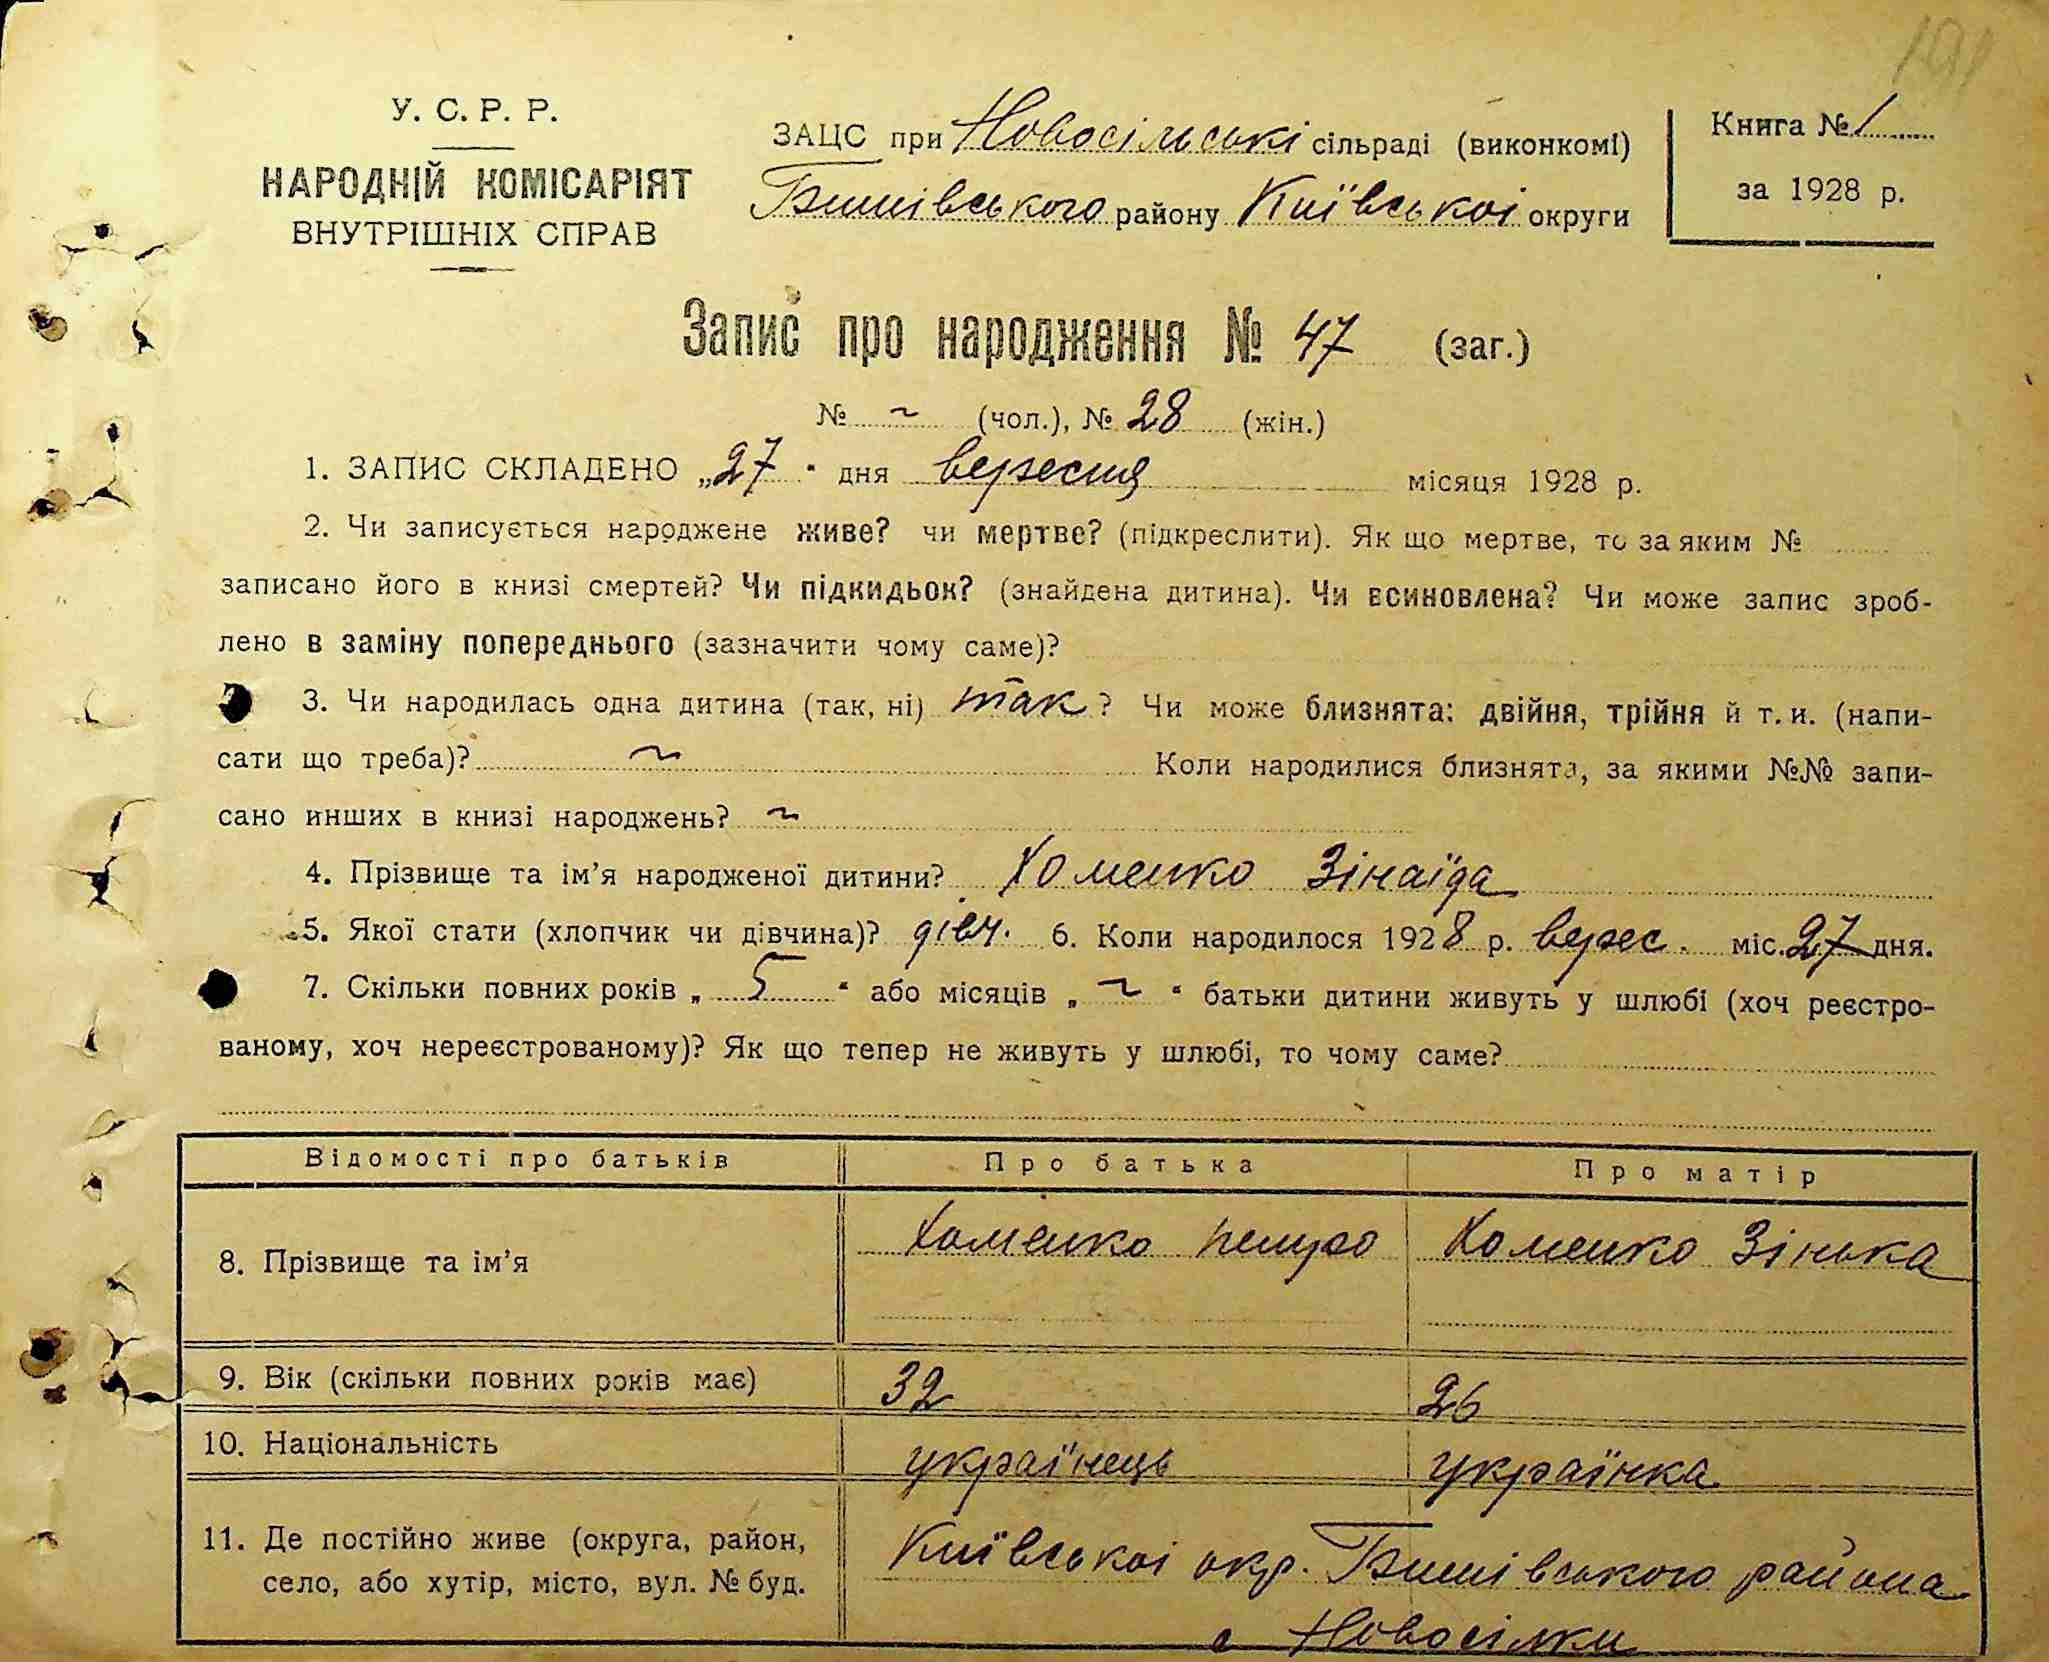 У. С. Р. Р.
НАРОДНІЙ КОМІСАРІЯТ
ВНУТРІШНІХ СПРАВ
ЗАЦС при Новосільські сільраді (виконкомі)
Бишівського району Київської округи
Книга № 1
за 1928 р.
Запис про народження № 47 (заг.)
№ ~ (чол.), № 28 (жін.)
1. ЗАПИС СКЛАДЕНО „27“ дня вересня місяця 1928 р.
2. Чи записується народжене живе? чи мертве? (підкреслити). Як що мертве, то за яким №
записано його в книзі смертей? Чи підкидьок? (знайдена дитина). Чи всиновлена? Чи може запис зроб-
лено в заміну попереднього (зазначити чому саме)?
3. Чи народилась одна дитина (так, ні) так? Чи може близнята: двійня, трійня й т. и. (напи-
сати що треба)? ~ Коли народилися близнята, за якими №№ запи-
сано инших в книзі народжень? ~
4. Прізвище та ім’я народженої дитини? Хоменко Зінаїда
5. Якої стати (хлопчик чи дівчина)? дівч. 6. Коли народилося 1928 р. верес. міс. 27 дня.
7. Скільки повних років „5“ або місяців „~“ батьки дитини живуть у шлюбі (хоч реєстро-
ваному, хоч нереєстрованому)? Як що тепер не живуть у шлюбі, то чому саме?
Відомості про батьків Про батька Про матір
8. Прізвище та ім’я Хоменко Петро Хоменко Зінька
9. Вік (скільки повних років має) 32 26
10. Національність українець українка
11. Де постійно живе (округа, район, Київської окр. Бишівського района
село, або хутір, місто, вул. № буд. с Новосілки